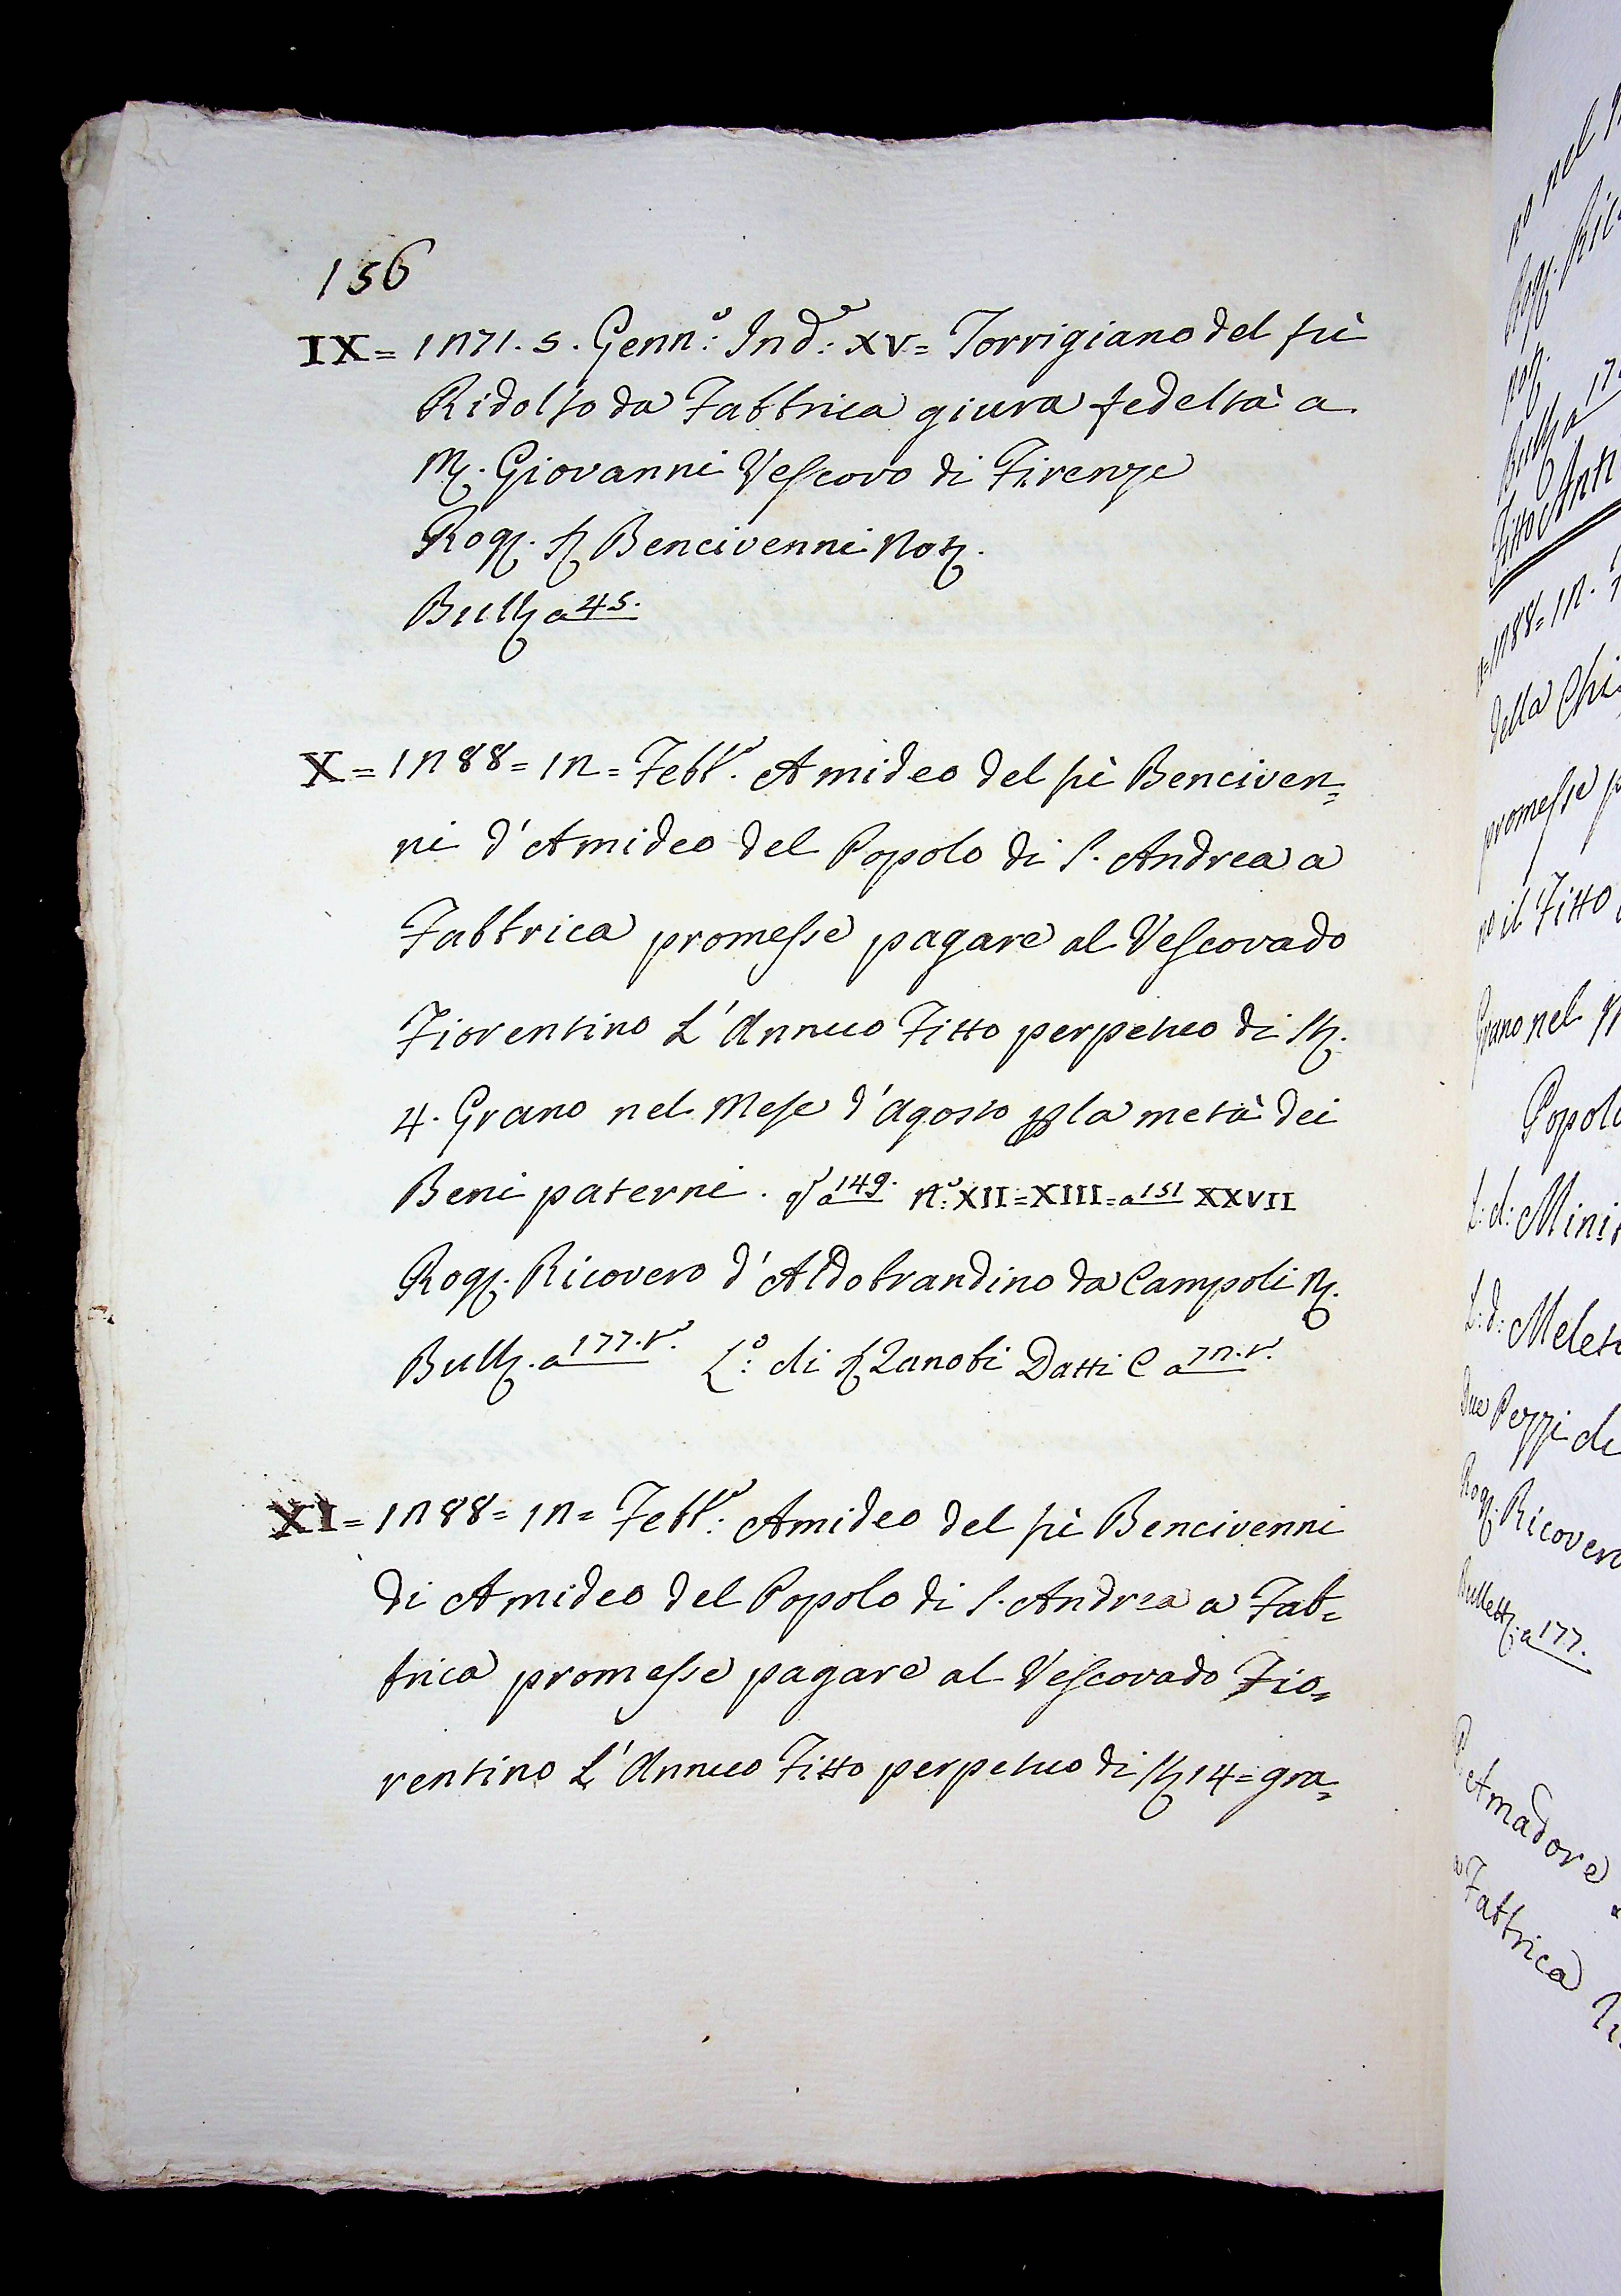 156
IX = 1271. 5. Genn.º Ind.e XV = Torrigiano del fù
Ridolfo da Fabbrica giura fedeltà a
M. Giovanni Vescovo di Firenze
Rog. S. Bencivenni Not.
Bull. a 45.
X = 1288 = 12 = Febb.º Amideo del fù Benciven=
ni d'Amideo del Popolo di S. Andrea a
Fabbrica promesse pagare al Vescovado
Fiorentino L'Annuo Fitto perpetuo di St.
4. Grano nel Mese d'Agosto per la metà dei
Beni paterni. Vº a 149. N.º XII = XIII = a 151 XXVII
Rog. Ricovero d'Aldobrandino da Campoli N.
Bull. a 177. vº. L.º di S. Zanobi Datti C a 72. vº.
XI = 1288 = 12 = Febb.º Amideo del fù Bencivenni
di Amideo del Popolo di S. Andrea a Fab=
brica promesse pagare al Vescovado Fio=
rentino L'Annuo Fitto perpetuo di St. 14 = gra=
no nel
Rog.
Not.
Bull. a
Fitto
1288 = 12.
della
promesse
no il Fitto
Grano nel
L: d:
L: d:
Due Pezzi di
Rog. Ricovero
Bullett. a 177.
Amadore
Fabbrica